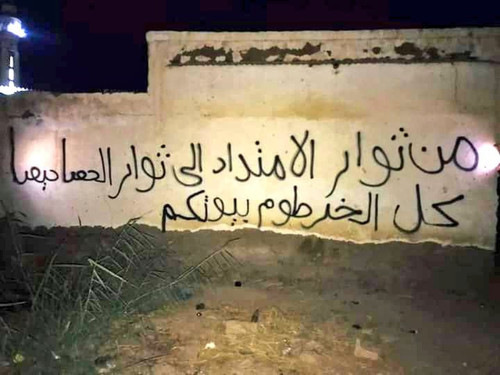 من ثوار الامتداد الى ثوار الحصاحيصا
كل الخرطوم بيوتكم